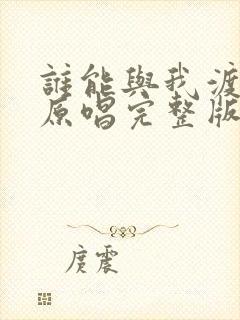 誰能與我渡
原唱完整版
庹震